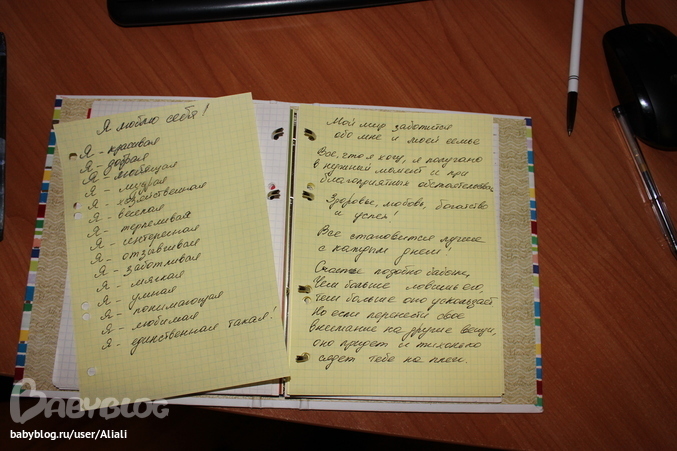 Я люблю себя!
Я - красивая
Я - добрая
Я - любящая
Я - мудрая
Я - хозяйственная
Я - веселая
Я - терпеливая
Я - интересная
Я - отзывчивая
Я - заботливая
Я - мягкая
Я - умная
Я - понимающая
Я - любимая
Я - единственная такая!
Мой мир заботится
обо мне и моей семье
Все, что я хочу, я получаю
в нужный момент и при
благоприятных обстоятельствах
Здоровье, любовь, богатство
и успех!
Все становится лучше
с каждым днем!
Счастье подобно бабочке,
Чем больше ловишь его,
тем больше оно ускользает
Но если перенести свое
внимание на другие вещи,
оно придет и тихонько
сядет тебе на плечо.
BABYBLOG
babyblog.ru/user/Aliali